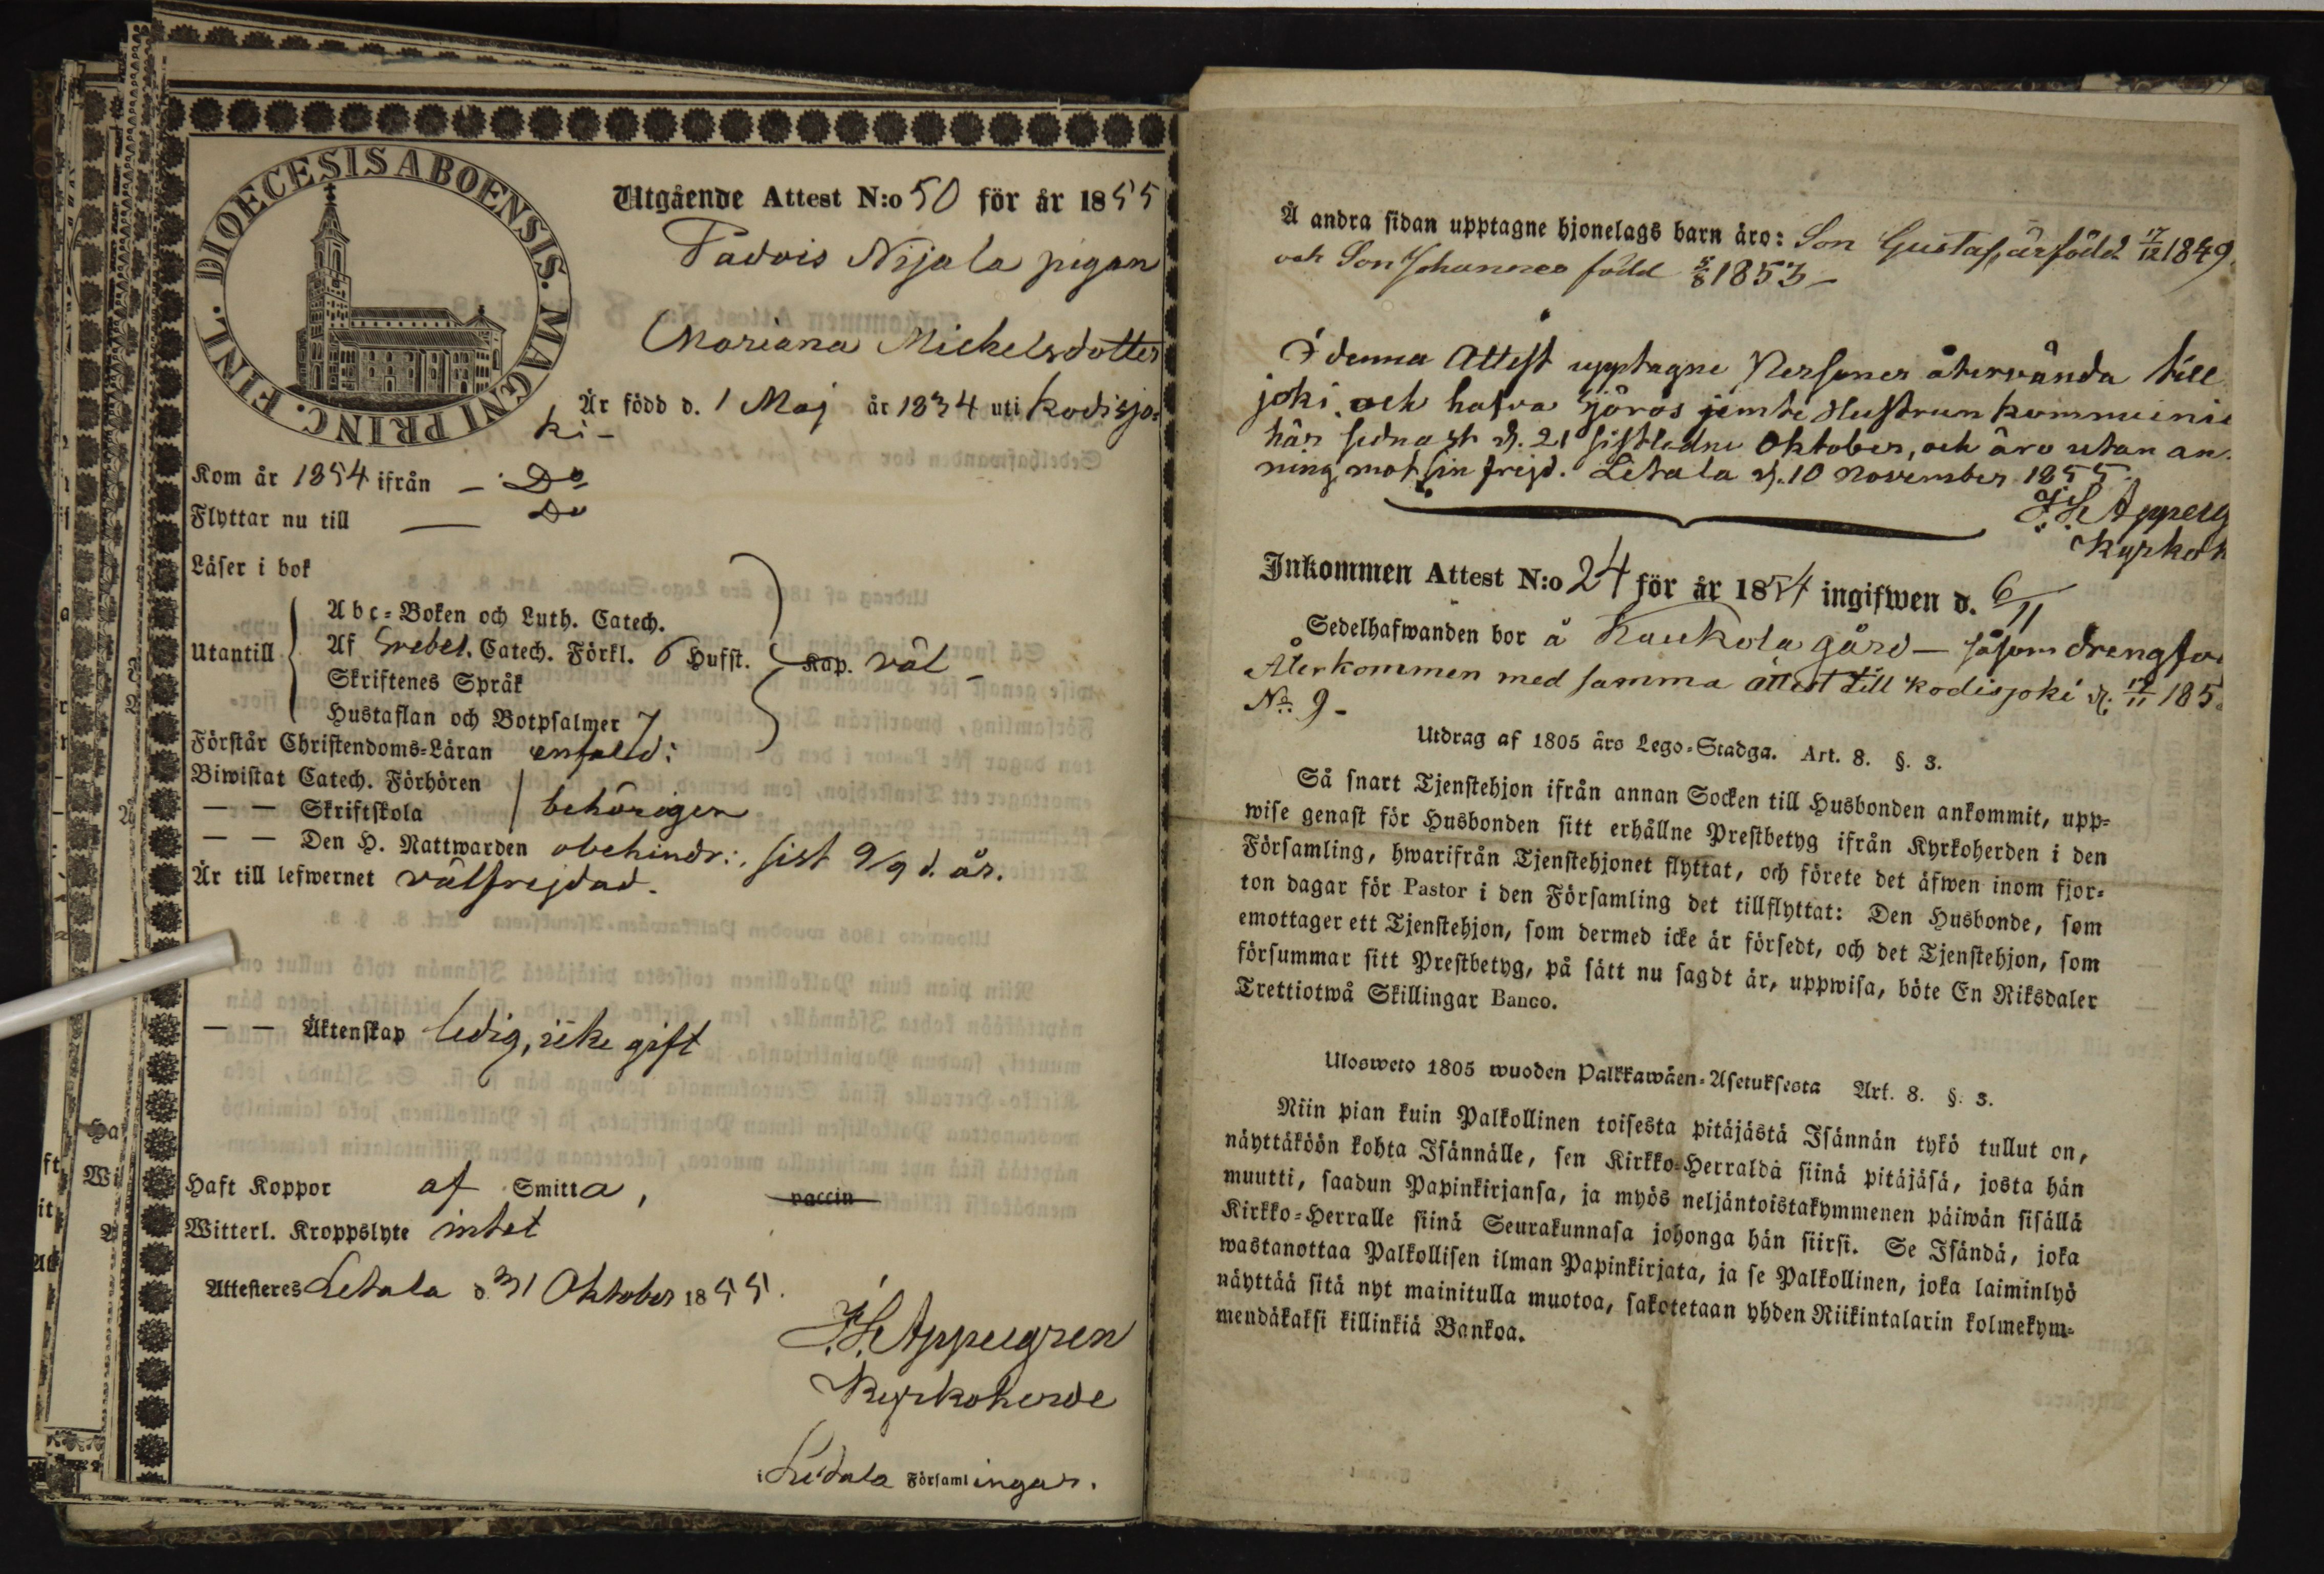 DIOECESIS ABOENSIS. MAGNI PRINC. FINL.
Utgående Attest N:o 50 för år 1855
Nijala pigan
Mariana Michelsdotter
Är född d. 1 Maj år 1834 uti Kodisjo-
ki -
Kom år 1854 ifrån - Do
Flyttar nu till — Do
Läser i bok
Utantill
Abc-Boken och Luth. Catech.
Af Svebel. Catech. Förkl. 6 Hufst.
Skriftenes Språk
Hustaflan och Botpsalmer 7
Kap. väl -
Förstår Christendoms-Läran enfald:
Biwistat Catech. Förhören
— — Skriftskola
behörigen
— — Den H. Nattwarden obehindr:, sist 9/9 d. år.
Är till lefwernet välfrejdad.
— — Äktenskap ledig, icke gift
Haft Koppor af Smitta, vaccin
Witterl. Kroppslyte intet
Attesteres Letala d. 31 Oktober 1855.
Appelgren
Kyrkoherde
i Letala Församlingar.
Å andra sidan upptagne hjonelags barn äro: Son Gustaf, är född 17/12 1849.
och Son Johannes född 1853 -
I denna Attest upptagne Personer återvända till
joki, och hafva
här sednast d. 21 sistledne Oktober, och äro utan an
ning mot sin frejd. Letala d. 10 November 1855.
Appelg
Kyrkoh
Inkommen Attest N:o 24 för år 1854 ingifwen d. 6/11
Sedelhafwanden bor å Kaukola gård — såsom drengfo
Återkommen med samma attest till Kodisjoki d. 185
No 9 -
Utdrag af 1805 års Lego-Stadga. Art. 8. §. 3.
Så snart Tjenstehjon ifrån annan Socken till Husbonden ankommit, upp-
wise genast för Husbonden sitt erhållne Prestbetyg ifrån Kyrkoherden i den
Församling, hwarifrån Tjenstehjonet flyttat, och förete det äfwen inom fjor-
ton dagar för Pastor i den Församling det tillflyttat: Den Husbonde, som
emottager ett Tjenstehjon, som dermed icke är försedt, och det Tjenstehjon, som
försummar sitt Prestbetyg, på sätt nu sagdt är, uppwisa, böte En Riksdaler
Trettiotwå Skillingar Banco.
Ulosweto 1805 wuoden Palkkawäen-Asetuksesta Art. 8. §. 3.
Niin pian kuin Palkollinen toisesta pitäjästä Isännän tykö tullut on,
näyttäköön kohta Isännälle, sen Kirkko-Herralda siinä pitäjäsä, josta hän
muutti, saadun Papinkirjansa, ja myös neljäntoistakymmenen päiwän sisällä
Kirkko-Herralle siinä Seurakunnasa johonga hän siirsi. Se Isändä, joka
wastanottaa Palkollisen ilman Papinkirjata, ja se Palkollinen, joka laiminlyö
näyttää sitä nyt mainitulla muotoa, sakotetaan yhden Riikintalarin kolmekym-
mendäkaksi killinkiä Bankoa.